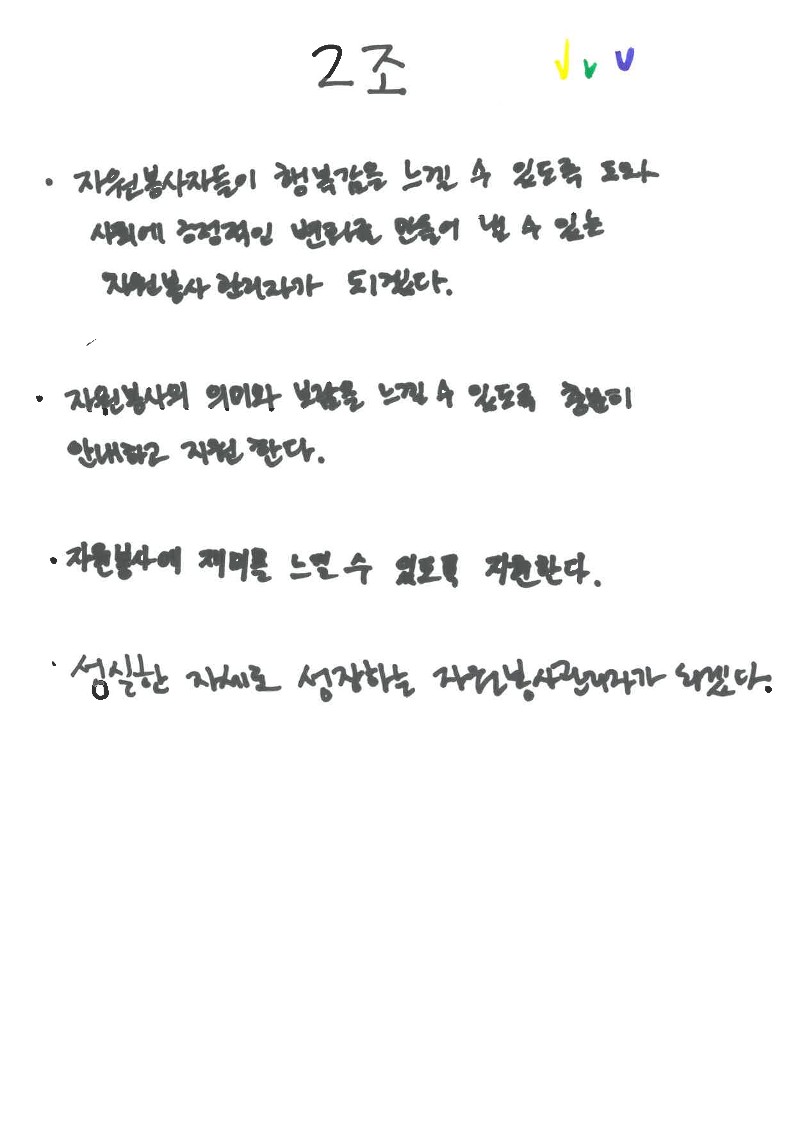 2조
· 자원봉사자들이 행복감을 느낄 수 있도록 도와
사회에 긍정적인 변화를 만들어 낼 수 있는
자원봉사 관리자가 되겠다.
· 자원봉사의 의미와 보람을 느낄 수 있도록 충분히
안내하고 지원 한다.
· 자원봉사에 재미를 느낄 수 있도록 지원한다.
· 성실한 자세로 성장하는 자원봉사관리자가 되겠다.